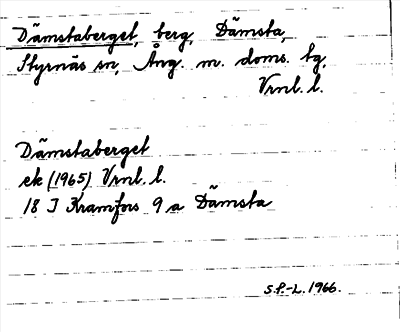 Dämstaberget, berg, Dämsta,
Styrnäs sn, Ång. m. doms. tg,
Vrnl. l.
Dämstaberget
ek (1965) Vrnl. l.
18 I Kramfors 9 a Dämsta
S.P.-L. 1966.